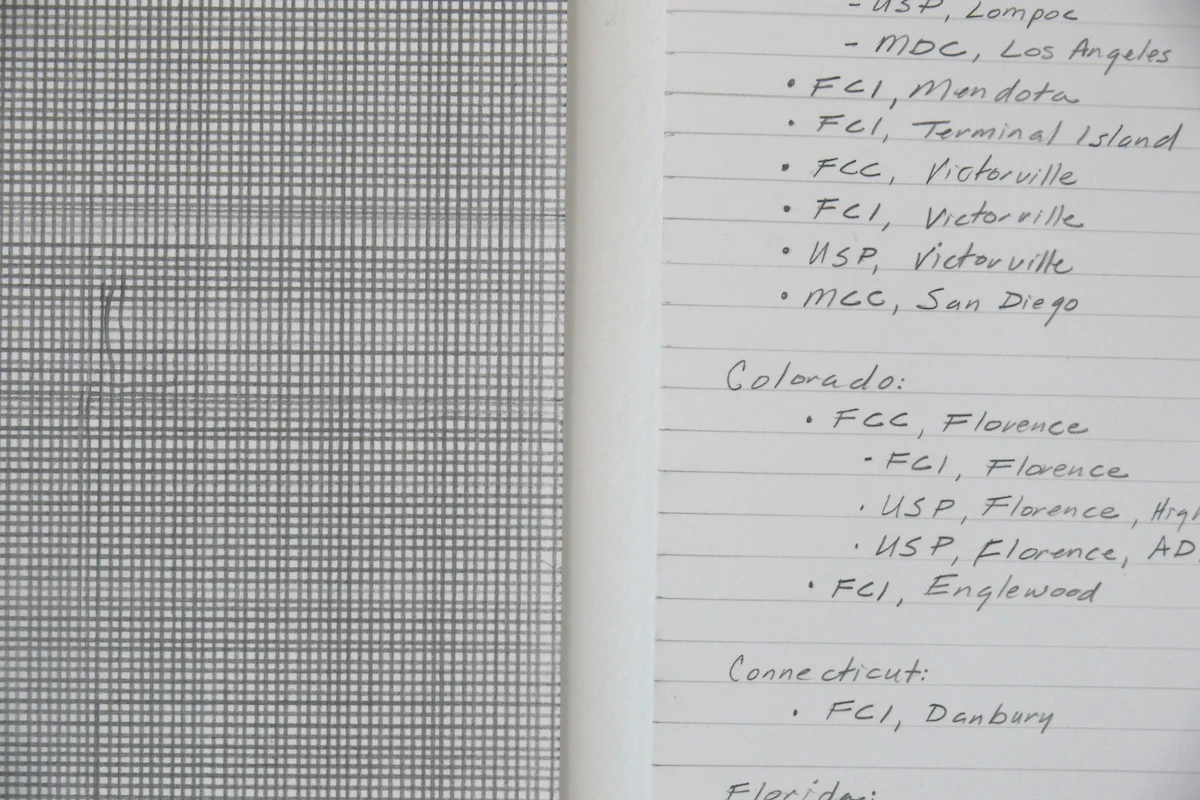 - USP, Lompoc
- MDC, Los Angeles
• FCI, Mendota
• FCI, Terminal Island
• FCC, Victorville
• FCI, Victorville
• USP, Victorville
• MCC, San Diego
Colorado:
• FCC, Florence
- FCI, Florence
· USP, Florence, High
· USP, Florence, AD
• FCI, Englewood
Connecticut:
• FCI, Danbury
Florida: